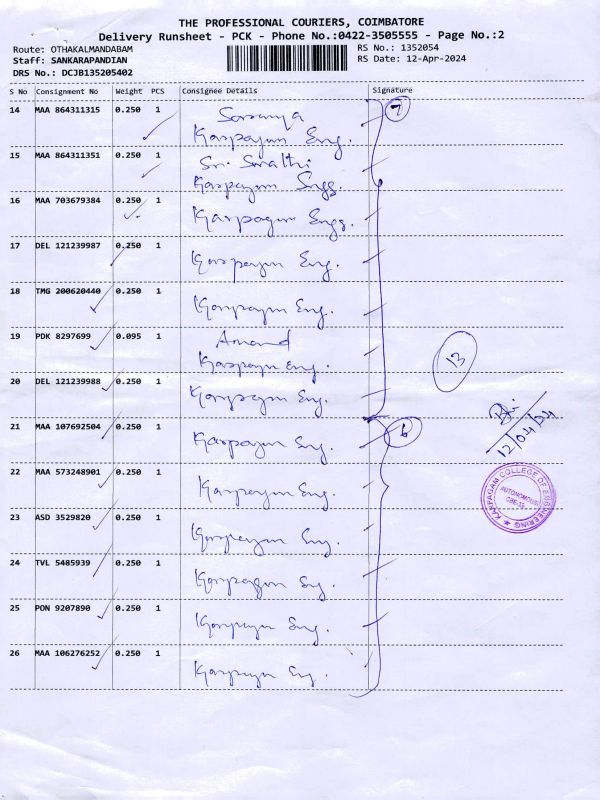 THE PROFESSIONAL COURIERS, COIMBATORE
Delivery Runsheet - PCK - Phone No.:0422-3505555 - Page No.:2
Route: OTHAKALMANDABAM
RS No.: 1352054
Staff: SANKARAPANDIAN
RS Date: 12-Apr-2024
DRS No.: DCJB135205402
S No Consignment No Weight PCS Consignee Details Signature
14 MAA 864311315 0.250 1 Saranya
Karpagam Eng.
7
15 MAA 864311351 0.250 1 Sri Swathi
Karpagam Engg.
16 MAA 703679384 0.250 1 Karpagam Engg.
17 DEL 121239987 0.250 1 Karpagam Eng.
18 TMG 200620440 0.250 1 Karpagam Eng.
19 PDK 8297699 0.095 1 Anand
Karpagam Eng.
13
20 DEL 121239988 0.250 1 Karpagam Eng.
21 MAA 107692504 0.250 1 Karpagam Eng.
6
12/04/24
22 MAA 573248901 0.250 1 Karpagam Eng.
KARPAGAM COLLEGE OF ENGINEERING
AUTONOMOUS
CBE-32
23 ASD 3529820 0.250 1 Karpagam Eng.
24 TVL 5485939 0.250 1 Karpagam Eng
25 PON 9207890 0.250 1 Karpagam Eng.
26 MAA 106276252 0.250 1 Karpagam Eng.